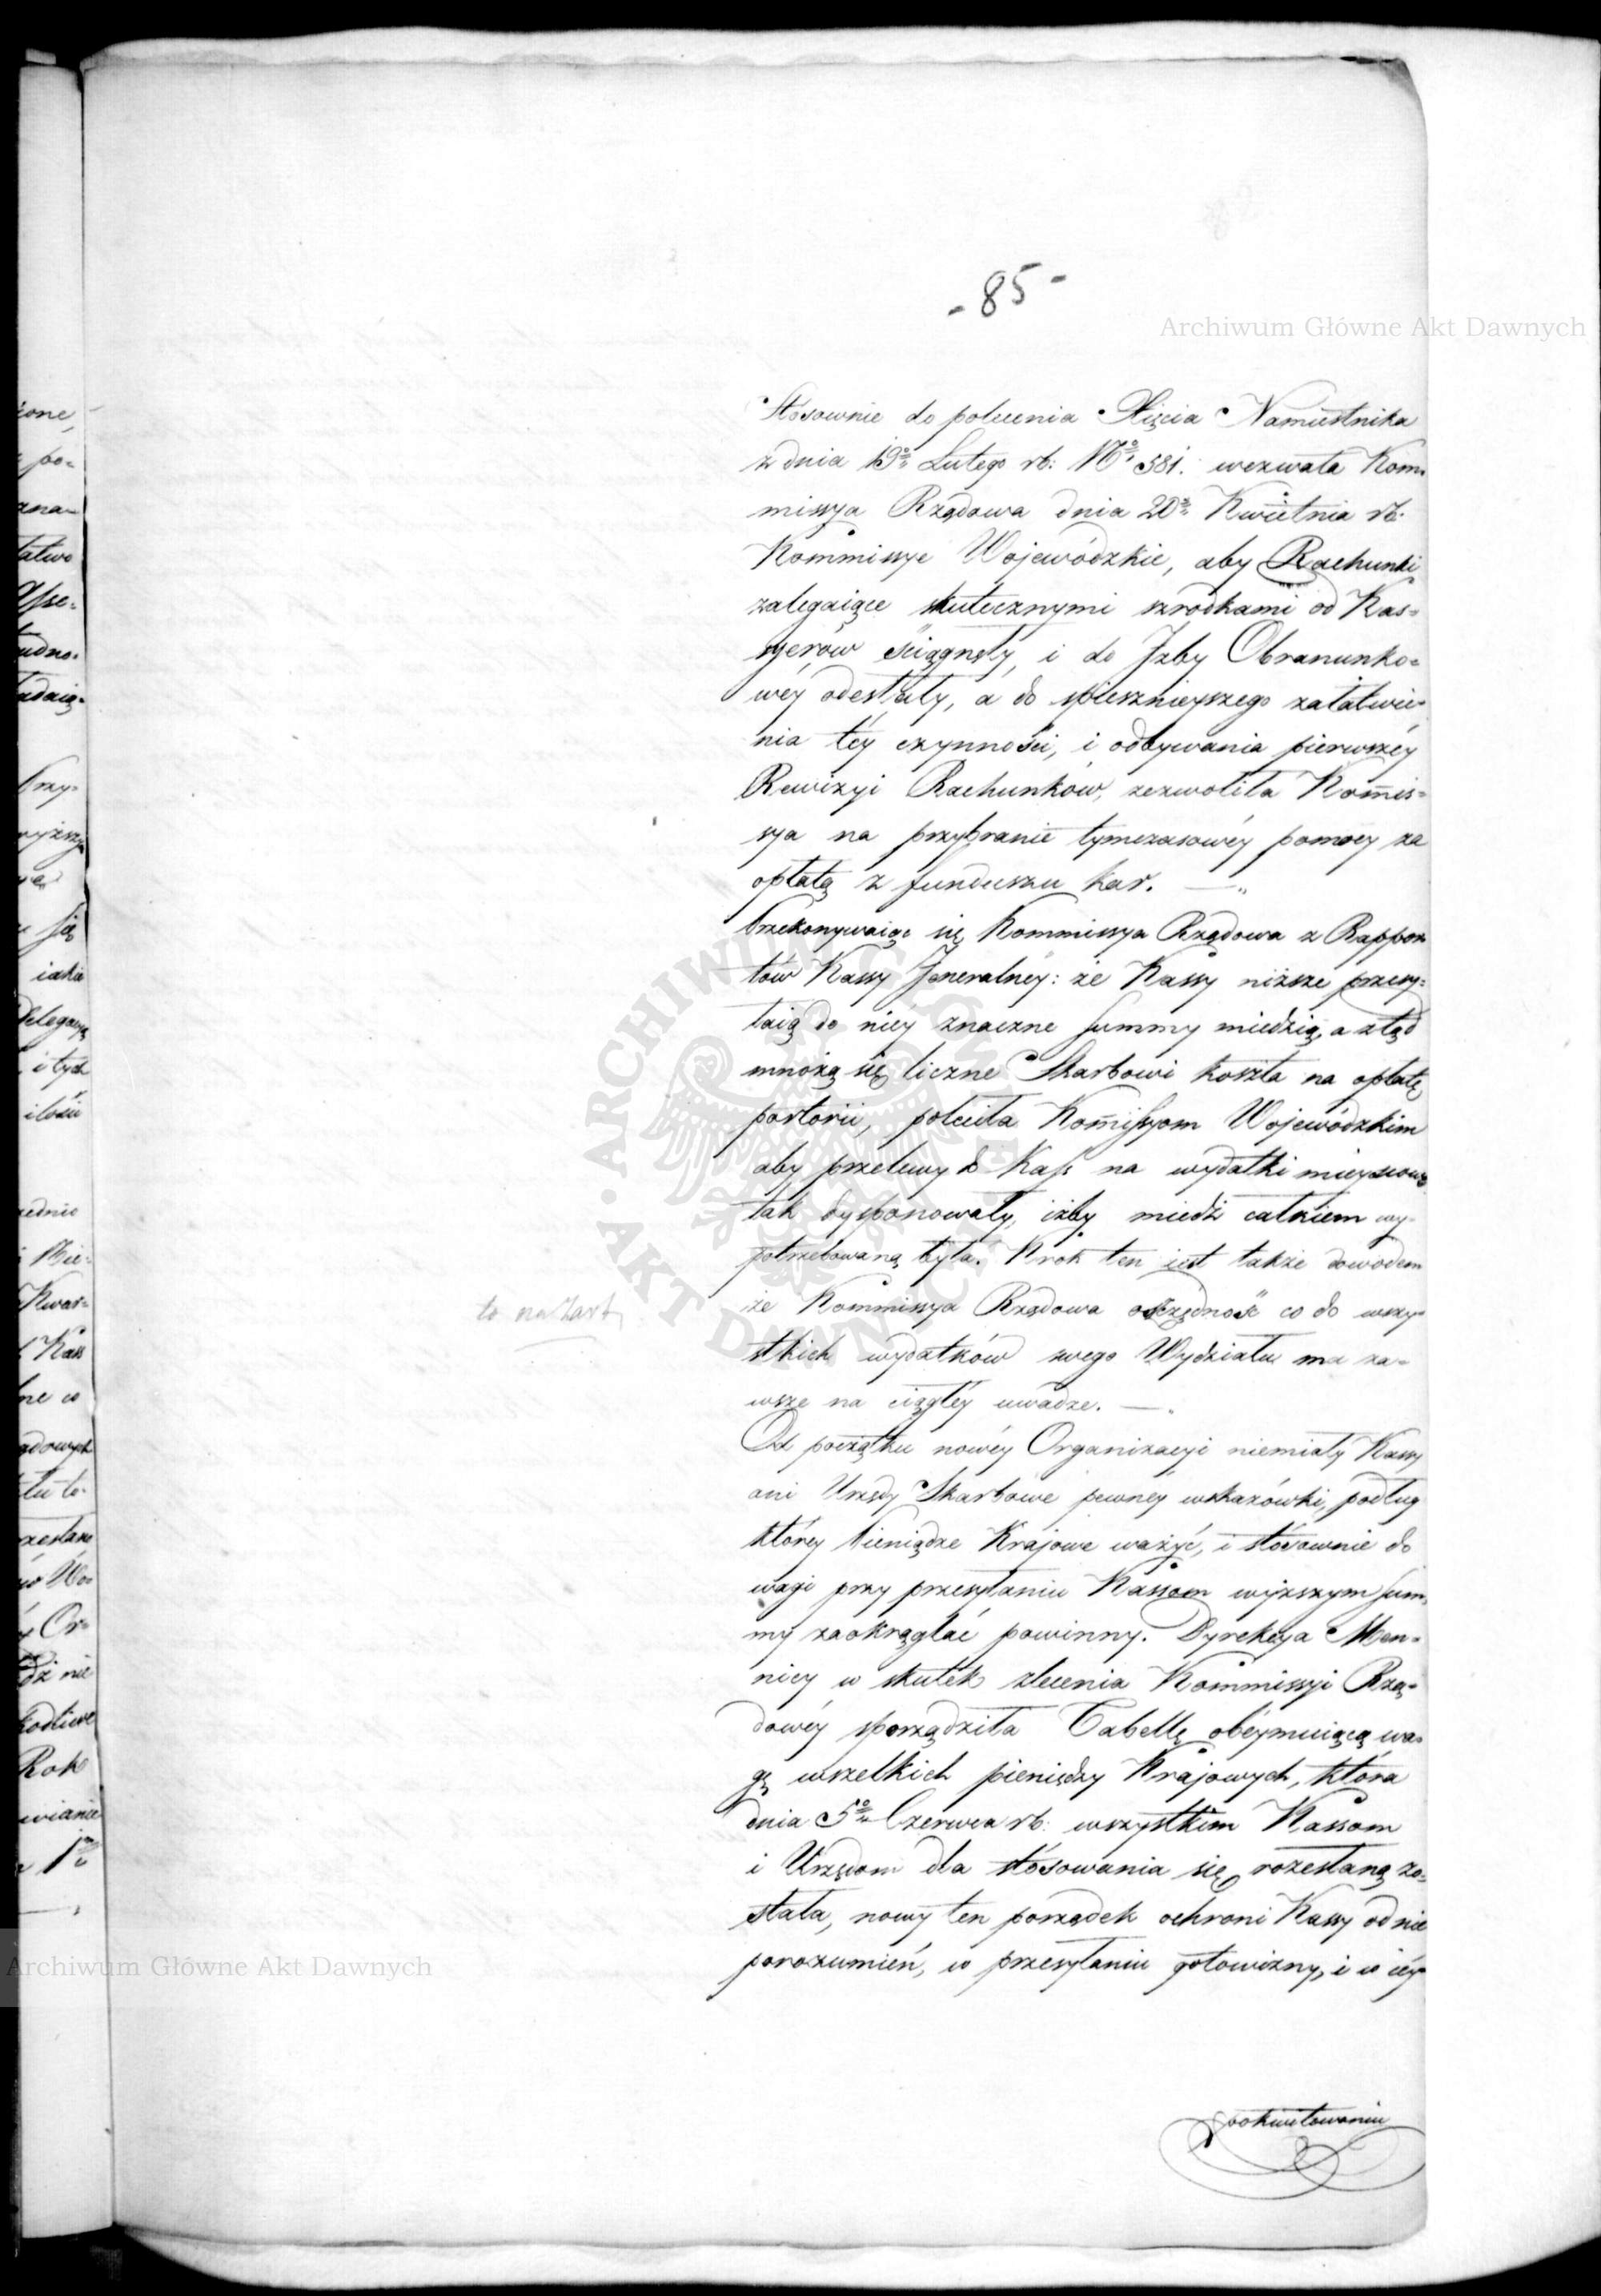 - 85 -
Archiwum Główne Akt Dawnych
Stósownie do polecenia Xięcia Namiestnika
z dnia 19º Lutego rb: Nº 581. wezwała Kom-
missya Rządowa dnia 20º Kwietnia rb.
Kommissye Wojewódzkie, aby Rachunki
zalegaiące skutecznymi szrodkami od Kas=
syerów ściągnęły, i do Jzby Obrachunko=
wéy odesłały, a do spieszniéyszego załatwie=
nia téy czynności, i odbywania pierwszéy
Rewizyi Rachunków, zezwoliła Kom̄is=
sya na przybranie tymczasowéy pomocy za
opłatą z funduszu kar. —„
Przekonywaiąc się Kommissya Rządowa z Rappor
tów Kassy Jeneralnéy: że Kassy niższe przesy=
łaią do niey znaczne summy miedzią, a ztąd
mnożą się liczne Skarbowi koszta na opłatę
portorii, poleciła Kom̄issyom Wojewódzkim
aby przelewy do Kass na wydatki mieyscowe
tak dysponowały, iżby miedź całkiem wy-
potrzebowaną była. Krok ten iest także dowodem
to na żart
że Kommissya Rządowa oszczędność co do wszy-
stkich wydatków swego Wydziału ma za=
wsze na ciągłéy uwadze. —.
Od początku nowéy Organizacyi niemiały Kassy
ani Urzędy Skarbowe pewnéy wskazówki, podług
któréy Pieniądze Krajowe ważyć, i stósownie do
wagi przy przesyłaniu Kassom wyższym sum-
my zaokrąglać powinny. Dyrekcya Men=
nicy w skutek zlecenia Kommissyi Rzą=
dowéy sporządziła Tabellę obéymuiącą wa=
gę wszelkich pieniędzy Krajowych, która
dnia 5º Czerwca rb: wszystkim Kassom
i Urzędom dla stósowania się rozesłaną zo=
stała, nowy ten porządek ochroni Kassy od nie
porozumień, w przesyłaniu gotowizny, i w iéy
pokwitowaniu
Archiwum Główne Akt Dawnych